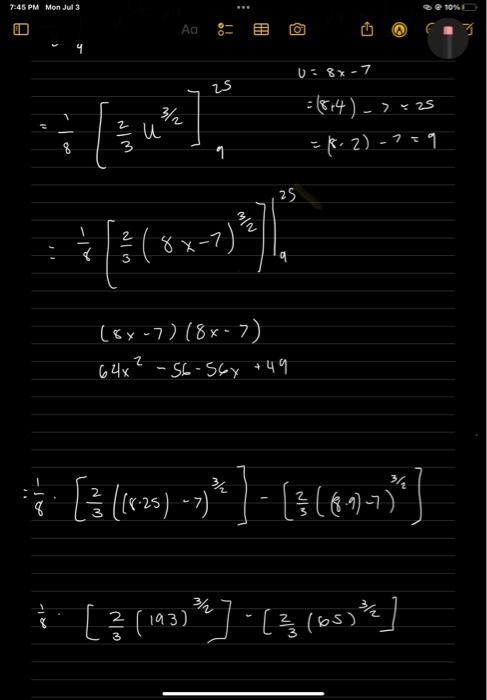 7:45 PM Mon Jul 3
10%
Aa
4
u = 8x - 7
= (8·4) - 7 = 25
= (8·2) - 7 = 9
= 1/8 [ 2/3 u^3/2 ] 25 9
= 1/8 [ 2/3 ( 8x-7 )^3/2 ] | 25 9
(8x-7) (8x-7)
64x² - 56 - 56x + 49
= 1/8 · [ 2/3 ((8·25) - 7)^3/2 ] - [ 2/3 ( (8·9) - 7 )^3/2 ]
1/8 · [ 2/3 (193)^3/2 ] - [ 2/3 (65)^3/2 ]